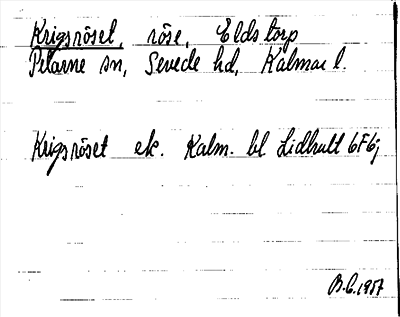 Krigsröset, röse, Eldstorp
Pelarne sn, Sevede hd, Kalmar l.
Krigsröset ek. Kalm. bl Lidhult 6F6j
B.C. 1957